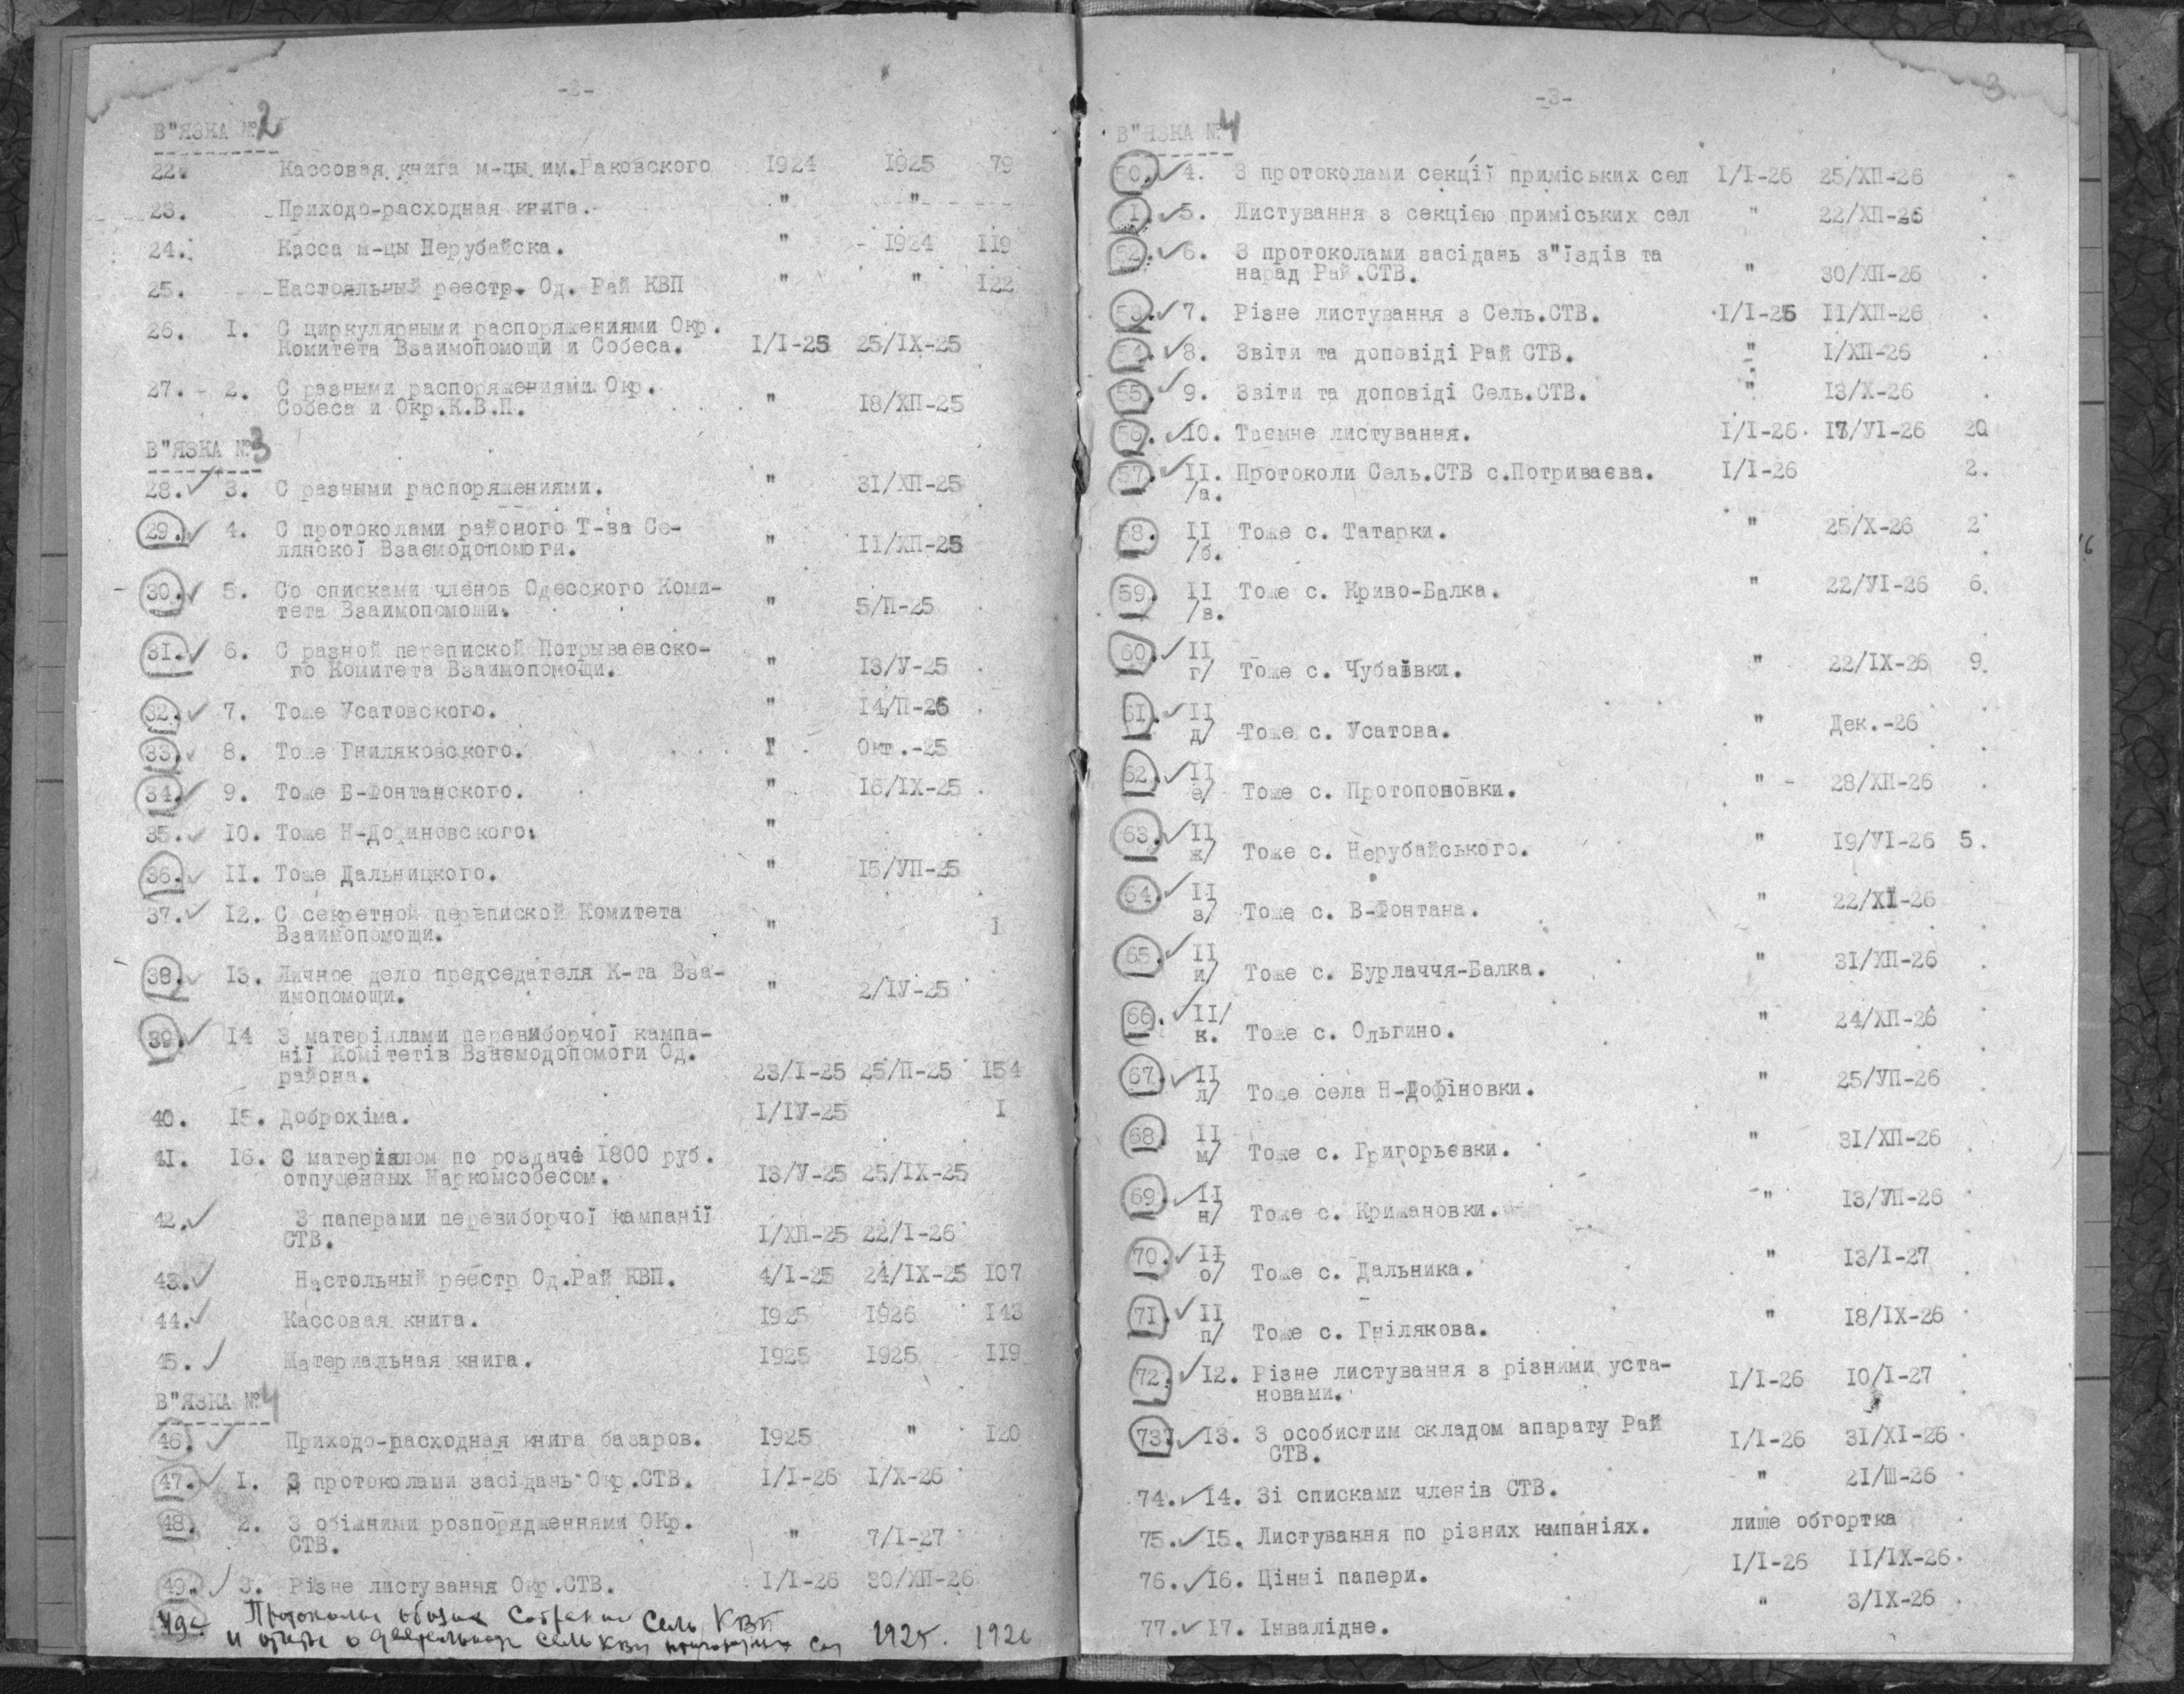 -2-
В"ЯЗКА №2
22. Кассовая книга м-цы им.Раковского 1924 1925 79
23. Приходо-расходная книга. " "
24. Касса м-цы Нерубайска. " 1924 119
25. Настояльный реестр. Од. Рай КВП " " 122
26. I. С циркулярными распоряжениями Окр.
Комитета Взаимопомощи и Собеса. I/I-25 25/IX-25
27. 2. С разными распоряжениями Окр.
Собеса и Окр.К.В.П. " 18/ХП-25
В"ЯЗКА №3
28. 3. С разными распоряжениями. " 31/ХП-25
29. 4. С протоколами районого Т-ва Се-
лянскої Взаємодопомоги. " II/ХП-25
30. 5. Со списками членов Одесского Коми-
тета Взаимопомощи. " 5/П-25
31. 6. С разной перепиской Потрываевско-
го Комитета Взаимопомощи. " 13/У-25
32. 7. Тоже Усатовского. " 14/П-26
33. 8. Тоже Гниляковского. " Окт.-25
34. 9. Тоже Б-Фонтанского. " 16/IX-25
35. 10. Тоже Н-Дофиновского. "
36. II. Тоже Дальницкого. " 15/УП-25
37. 12. С секретной перепиской Комитета
Взаимопомощи. " I
38. 13. Личное дело председателя К-та Вза-
имопомощи. " 2/IУ-25
39. 14 З матеріялами перевиборчої кампа-
нії Комітетів Взаємодопомоги Од.
района. 23/I-25 25/П-25 154
40. 15. Доброхіма. I/IУ-25 I
41. 16. С матеріялом по роздаче 1800 руб.
отпущенных Наркомсобесом. 13/У-25 25/IX-25
42. З паперами перевиборчої кампанії
СТВ. I/ХП-25 22/I-26
43. Настольный реестр Од.Рай КВП. 4/I-25 24/IX-25 107
44. Кассовая книга. 1925 1926 143
45. Материальная книга. 1925 1925 119
В"ЯЗКА №4
46. Приходо-расходная книга базаров. 1925 " 120
47. I. З протоколами засідань Окр.СТВ. I/I-26 I/X-26
48. 2. З обіжними розпорядженнями Окр.
СТВ. " 7/I-27
49. 3. Різне листування Окр.СТВ. I/I-26 30/ХП-26
49а Протоколы общих Собрании Сель КВП
и отчеты о деятельности сель КВП сел 1925. 1926
-3-
3
В"ЯЗКА №4
50. 4. З протоколами секції приміських сел I/I-26 25/ХП-26
51. 5. Листування з секцією приміських сел " 22/ХП-26
52. 6. З протоколами засідань з"їздів та
нарад Рай.СТВ. " 30/ХП-26
53. 7. Різне листування з Сель.СТВ. I/I-26 II/ХП-26
54. 8. Звіти та доповіді Рай СТВ. " I/ХП-26
55. 9. Звіти та доповіді Сель.СТВ. " 13/X-26
56. 10. Таємне листування. I/I-26 17/УI-26 20
57. II. Протоколи Сель.СТВ с.Потриваєва. I/I-26 2.
/а.
58. II Тоже с. Татарки. " 25/X-26 2
/б.
59. II Тоже с. Криво-Балка. " 22/УI-26 6.
/в.
60. II
г/ Тоже с. Чубаївки. " 22/IX-26 9.
61. II
д/ Тоже с. Усатова. " Дек.-26
62. II
е/ Тоже с. Протопоповки. " 28/ХП-26
63. II
ж/ Тоже с. Нерубайського. " 19/УI-26 5.
64. II
з/ Тоже с. В-Фонтана. " 22/XI-26
65. II
и/ Тоже с. Бурлаччя-Балка. " 31/ХП-26
66. II/
к. Тоже с. Ольгино. " 24/ХП-26
67. II
л/ Тоже села Н-Дофіновки. " 25/УП-26
68. II
м/ Тоже с. Григорьевки. " 31/ХП-26
69. II
н/ Тоже с. Крижановки. " 13/УП-26
70. II
о/ Тоже с. Дальника. " 13/I-27
71. II
п/ Тоже с. Гнілякова. " 18/IX-26
72. 12. Різне листування з різними уста-
новами. I/I-26 10/I-27
73. 13. З особистим складом апарату Рай
СТВ. I/I-26 31/XI-26
74. 14. Зі списками членів СТВ. " 21/Ш-26
75. 15. Листування по різних кмпаніях. лише обгортка
76. 16. Цінні папери. I/I-26 II/IX-26
77. 17. Інвалідне. " 3/IX-26